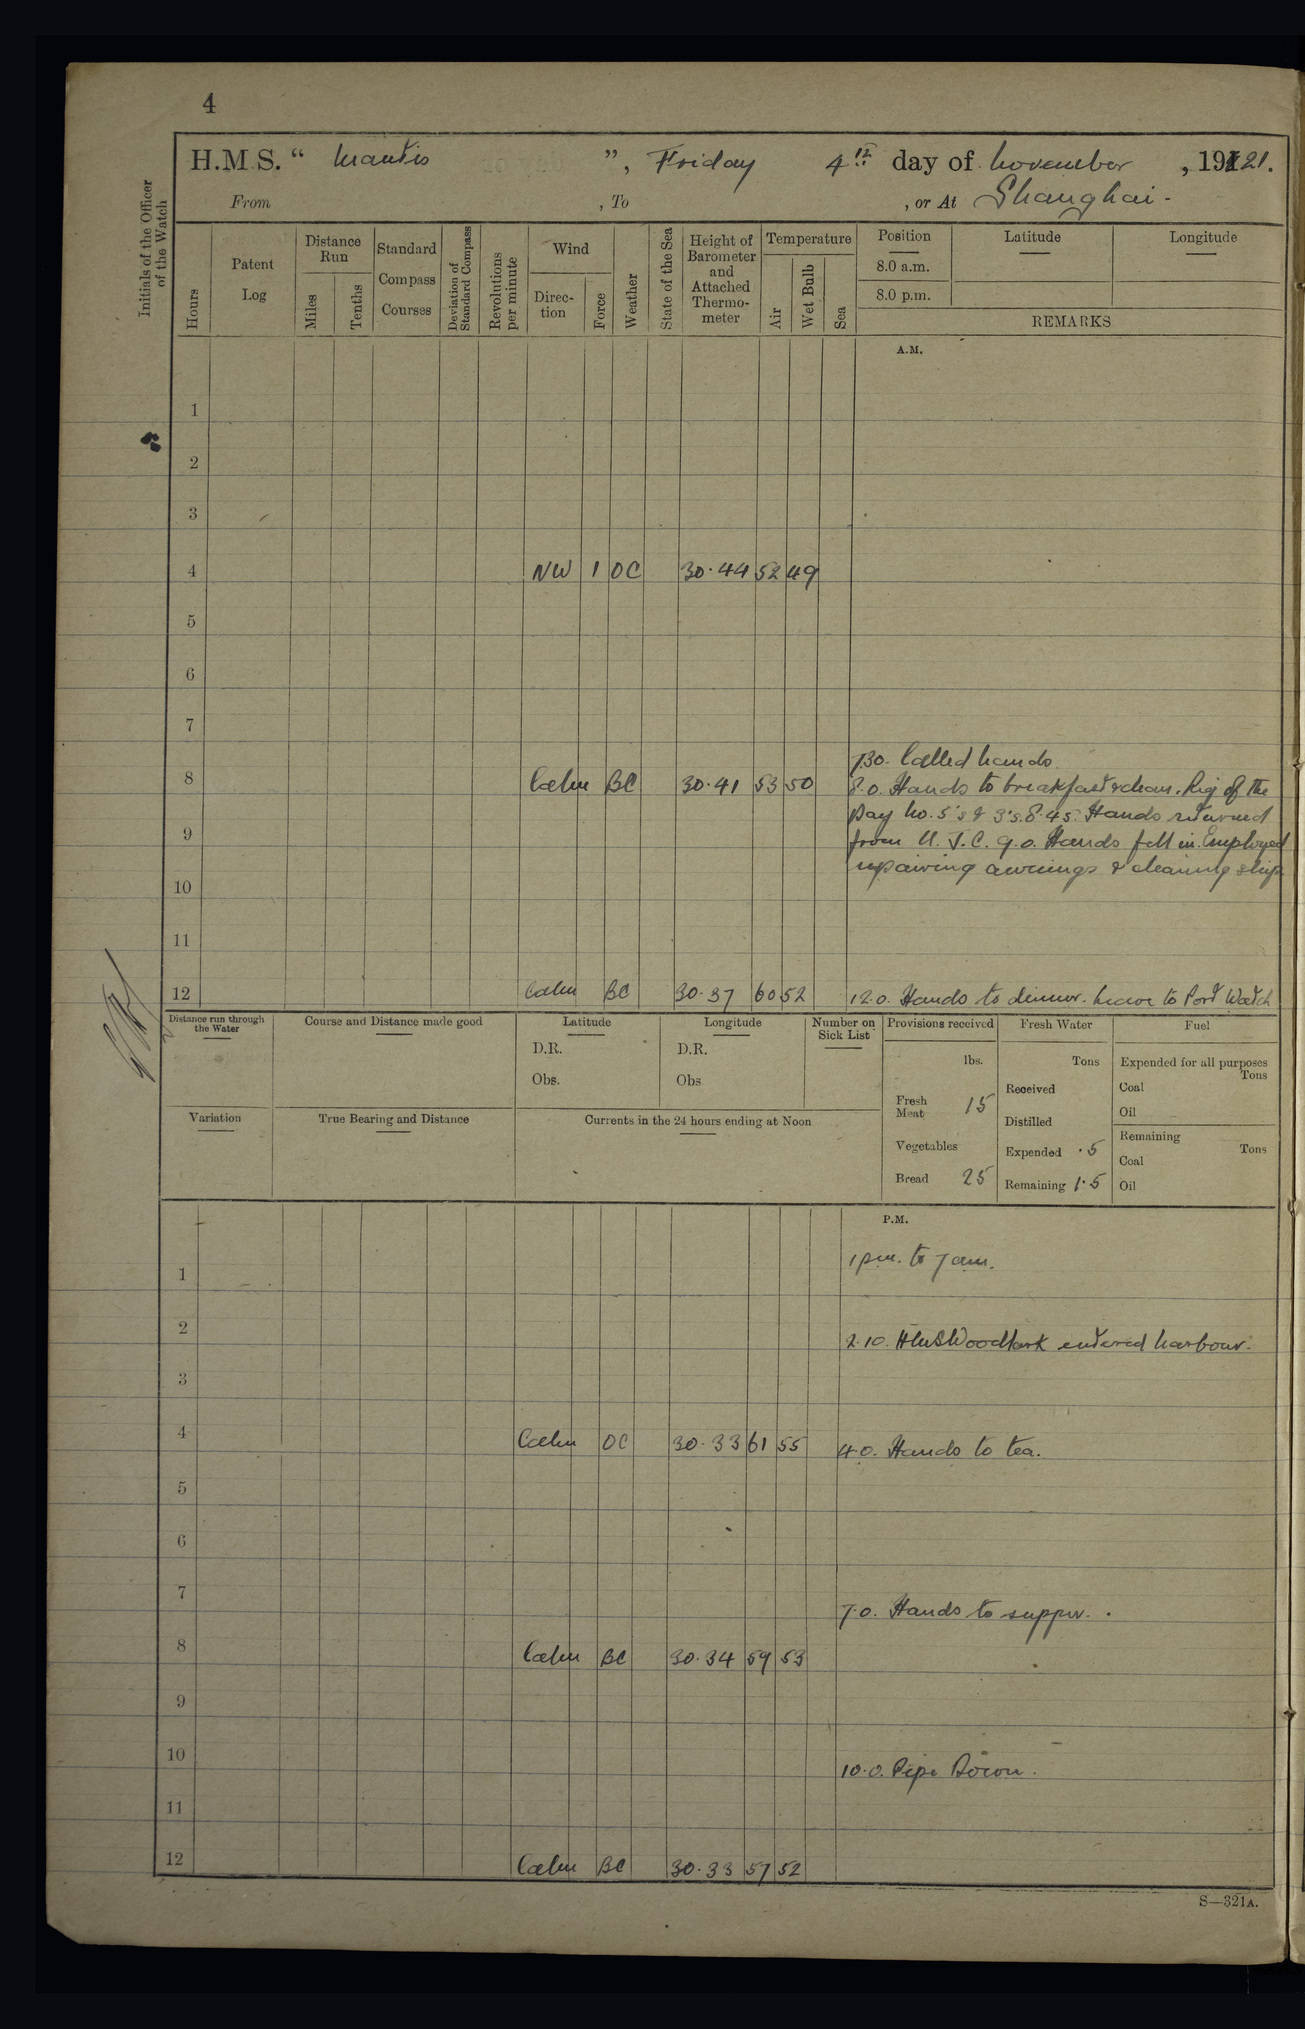 4
H.M.S. “ Mantis ”, Friday 4th day of November , 1921.
From , To , or At Shanghai -
Initials of the Officer of the Watch
Hours
Patent Log
Distance Run
Miles
Tenths
Standard Compass Courses
Deviation of Standard Compass
Revolutions per minute
Wind
Direc-tion
Force
Weather
State of the Sea
Height of Barometer and Attached Thermo-meter
Temperature
Air
Wet Bulb
Sea
Position
8.0 a.m.
8.0 p.m.
Latitude
Longitude
REMARKS
A.M.
1
2
3
4 NW 1 OC 30.44 52 49
5
6
7
7.30. Called hands.
8 Calm BC 30.41 53 50 8.0. Hands to breakfast & clean. Rig of the
Day No. 5's & 3's. 8.45. Hands returned
9 from U. J. C. 9.0. Hands fell in. Employed
repairing awnings & cleaning ship
10
11
12 Calm BC 30.37 60 52 12.0. Hands to dinner. Leave to Port Watch
Distance run through the Water
Course and Distance made good
Latitude
D.R.
Obs.
Longitude
D.R.
Obs
Number on Sick List
Provisions received
lbs.
Fresh Meat 15
Vegetables
Bread 25
Fresh Water
Tons
Received
Distilled
Expended .5
Remaining 1.5
Fuel
Expended for all purposes
Tons
Coal
Oil
Remaining
Tons
Coal
Oil
Variation
True Bearing and Distance
Currents in the 24 hours ending at Noon
P.M.
1 pm. to 7 am.
1
2 2.10. HMS Woodlark entered harbour.
3
4 Calm OC 30.33 61 55 4.0. Hands to tea.
5
6
7 7.0. Hands to supper.
8 Calm BC 30.34 59 53
9
10 10.0. Pipe Down.
11
12 Calm BC 30.33 57 52
S—321A.